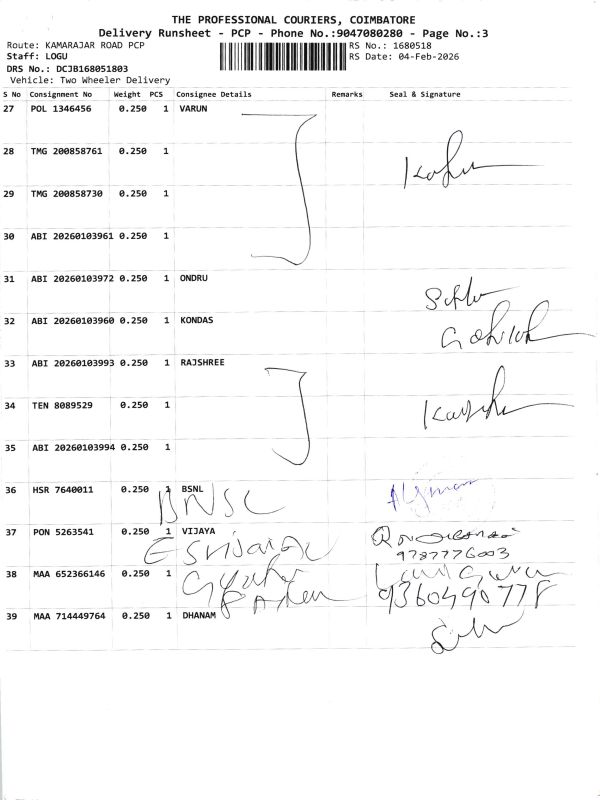 THE PROFESSIONAL COURIERS, COIMBATORE
Delivery Runsheet - PCP - Phone No.:9047080280 - Page No.:3
Route: KAMARAJAR ROAD PCP RS No.: 1680518
Staff: LOGU RS Date: 04-Feb-2026
DRS No.: DCJB168051803
Vehicle: Two Wheeler Delivery
S No Consignment No Weight PCS Consignee Details Remarks Seal & Signature
27 POL 1346456 0.250 1 VARUN
28 TMG 200858761 0.250 1
29 TMG 200858730 0.250 1
30 ABI 20260103961 0.250 1
31 ABI 20260103972 0.250 1 ONDRU
32 ABI 20260103960 0.250 1 KONDAS
33 ABI 20260103993 0.250 1 RAJSHREE
34 TEN 8089529 0.250 1
35 ABI 20260103994 0.250 1
36 HSR 7640011 0.250 1 BSNL
BNSC
37 PON 5263541 0.250 1 VIJAYA
9787776003
38 MAA 652366146 0.250 1
9360490778
39 MAA 714449764 0.250 1 DHANAM